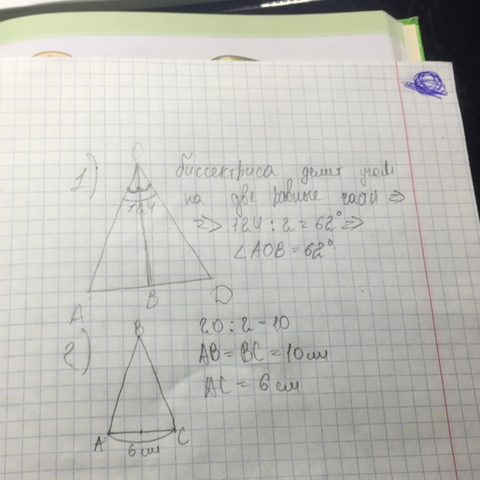 1)
O
124
A
B
D
биссектриса делит угол
на две равные части =>
=> 124 : 2 = 62° =>
∠AOB = 62°
2)
B
A
C
6 см
20 : 2 - 10
AB = BC = 10 см
AC = 6 см